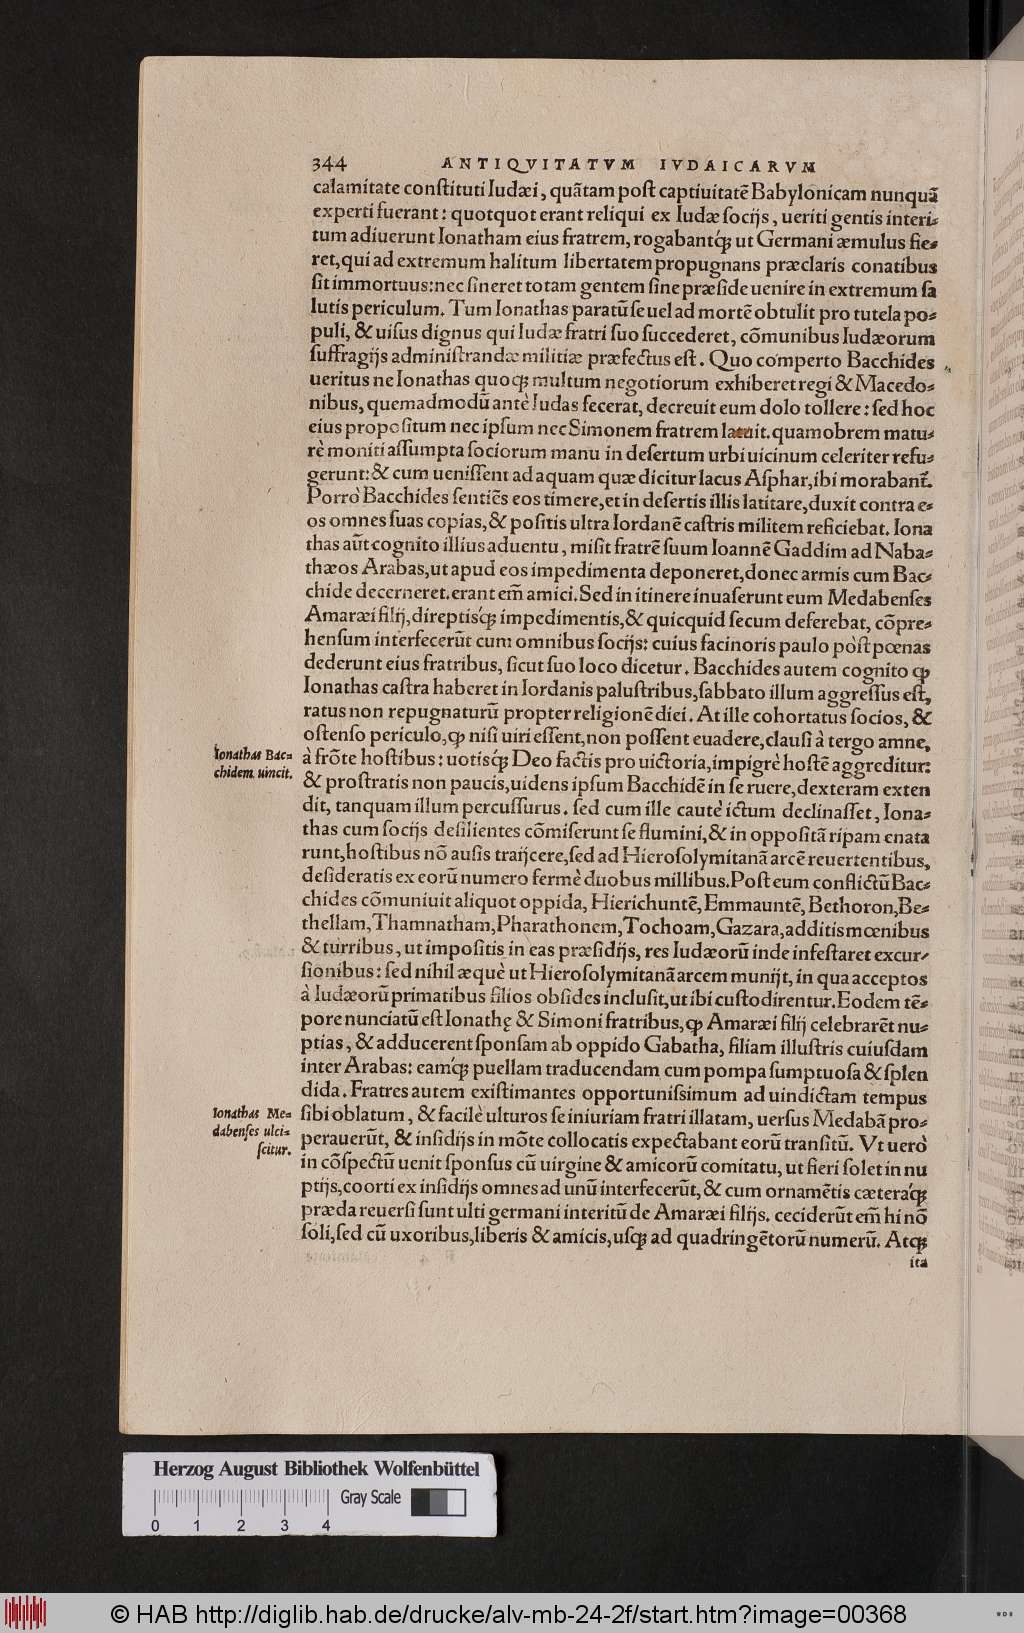 344 ANTIQVITATVM IVDAICARVM
calamitate conſtituti Iudæi, quãtam poſt captiuitatẽ Babylonicam nunquã
experti fuerant: quotquot erant reliqui ex Iudæ ſocijs, ueriti gentis interi-
tum adiuerunt Ionatham eius fratrem, rogabantq́; ut Germani æmulus fie-
ret, qui ad extremum halitum libertatem propugnans præclaris conatibus
ſit immortuus: nec ſineret totam gentem ſine præſide uenire in extremum ſa
lutis periculum. Tum Ionathas paratũ ſe uel ad mortẽ obtulit pro tutela po-
puli, & uiſus dignus qui Iudæ fratri ſuo ſuccederet, cõmunibus Iudæorum
ſuffragijs adminiſtrandæ militiæ præfectus eſt. Quo comperto Bacchides
ueritus ne Ionathas quoq; multum negotiorum exhiberet regi & Macedo-
nibus, quemadmodũ antè Iudas fecerat, decreuit eum dolo tollere: ſed hoc
eius propoſitum nec ipſum nec Simonem fratrem latuit. quamobrem matu-
rè moniti aſſumpta ſociorum manu in deſertum urbi uicinum celeriter refu-
gerunt: & cum ueniſſent ad aquam quæ dicitur lacus Aſphar, ibi morabant̃.
Porrò Bacchides ſentiẽs eos timere, et in deſertis illis latitare, duxit contra e-
os omnes ſuas copias, & poſitis ultra Iordanẽ caſtris militem reficiebat. Iona
thas aũt cognito illius aduentu, miſit fratrẽ ſuum Ioannẽ Gaddim ad Naba-
thæos Arabas, ut apud eos impedimenta deponeret, donec armis cum Bac-
chide decerneret. erant em̃ amici. Sed in itinere inuaſerunt eum Medabenſes
Amaræi filij, direptisq́; impedimentis, & quicquid ſecum deferebat, cõpre-
henſum interfecerũt cum omnibus ſocijs: cuius facinoris paulo pòſt pœnas
dederunt eius fratribus, ſicut ſuo loco dicetur. Bacchides autem cognito ꝙ
Ionathas caſtra haberet in Iordanis paluſtribus, ſabbato illum aggreſſus eſt,
ratus non repugnaturũ propter religionẽ diei. At ille cohortatus ſocios, &
oſtenſo periculo, ꝙ niſi uiri eſſent, non poſſent euadere, clauſi à tergo amne,
Ionathas Bac-
chidem uincit.
à frõte hoſtibus: uotisq́; Deo factis pro uictoria, impigrè hoſtẽ aggreditur:
& proſtratis non paucis, uidens ipſum Bacchidẽ in ſe ruere, dexteram exten
dit, tanquam illum percuſſurus. ſed cum ille cautè ictum declinaſſet, Iona-
thas cum ſocijs deſilientes cõmiſerunt ſe flumini, & in oppoſitã ripam enata
runt, hoſtibus nõ auſis traijcere, ſed ad Hieroſolymitanã arcẽ reuertentibus,
deſideratis ex eorũ numero fermè duobus millibus. Poſt eum conflictũ Bac-
chides cõmuniuit aliquot oppida, Hierichuntẽ, Emmauntẽ, Bethoron, Be-
thellam, Thamnatham, Pharathonem, Tochoam, Gazara, additis mœnibus
& turribus, ut impoſitis in eas præſidijs, res Iudæorũ inde infeſtaret excur-
ſionibus: ſed nihil æquè ut Hieroſolymitanã arcem munijt, in qua acceptos
à Iudæorũ primatibus filios obſides incluſit, ut ibi cuſtodirentur. Eodem tẽ-
pore nunciatũ eſt Ionathę & Simoni fratribus, ꝙ Amaræi filij celebrarẽt nu-
ptias, & adducerent ſponſam ab oppido Gabatha, filiam illuſtris cuiuſdam
inter Arabas: eamq́; puellam traducendam cum pompa ſumptuoſa & ſplen
dida. Fratres autem exiſtimantes opportuniſsimum ad uindictam tempus
Ionathas Me-
dabenſes ulci-
ſcitur.
ſibi oblatum, & facilè ulturos ſe iniuriam fratri illatam, uerſus Medabã pro-
perauerũt, & inſidijs in mõte collocatis expectabant eorũ tranſitũ. Vt uerò
in cõſpectũ uenit ſponſus cũ uirgine & amicorũ comitatu, ut fieri ſolet in nu
ptijs, coorti ex inſidijs omnes ad unũ interfecerũt, & cum ornamẽtis cæteraq́;
præda reuerſi ſunt ulti germani interitũ de Amaræi filijs. ceciderũt em̃ hi nõ
ſoli, ſed cũ uxoribus, liberis & amicis, uſq; ad quadringẽtorũ numerũ. Atq;
ita
Herzog August Bibliothek Wolfenbüttel
Gray Scale
0 1 2 3 4
© HAB http://diglib.hab.de/drucke/alv-mb-24-2f/start.htm?image=00368